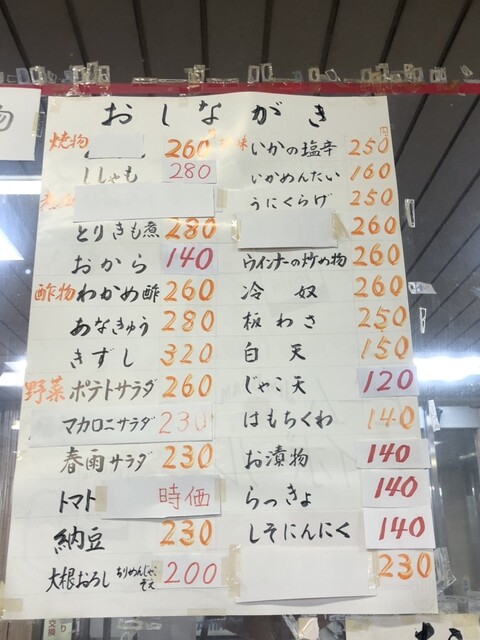 おしながき
焼物
260
ししゃも 280
とりきも煮 280
おから 140
酢物 わかめ酢 260
あなきゅう 280
きずし 320
野菜 ポテトサラダ 260
マカロニサラダ 230
春雨サラダ 230
トマト 時価
納豆 230
大根おろし ちりめんじゃこそえ 200
味 いかの塩辛 250円
いかめんたい 160
うにくらげ 250
260
ウインナーの炒め物 260
冷奴 260
板わさ 250
白天 150
じゃこ天 120
はもちくわ 140
お漬物 140
らっきょ 140
しそにんにく 140
230
物